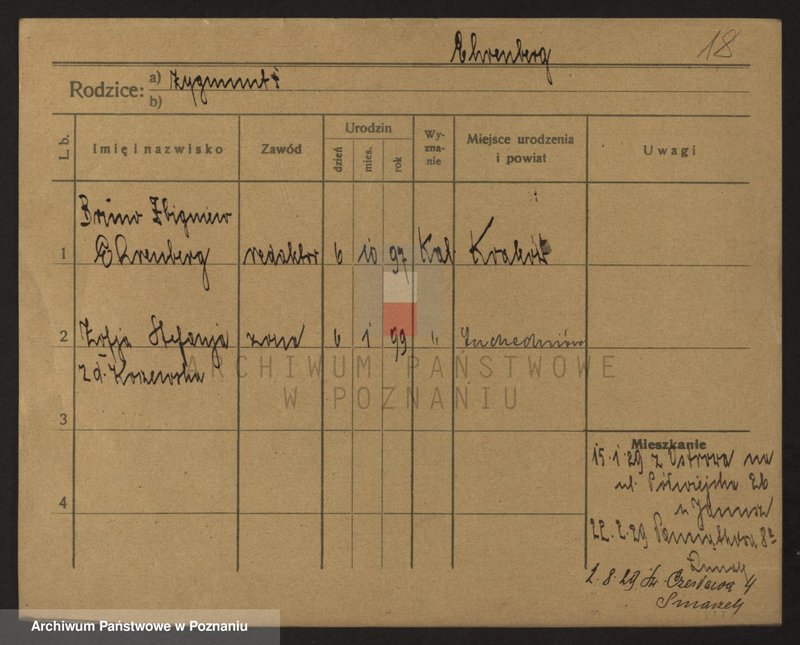 Ehrenberg
18
Rodzice: a) Zygmunt
b)
L. b.
Imię i nazwisko
Zawód
Urodzin
dzień
mies.
rok
Wy-
zna-
nie
Miejsce urodzenia
i powiat
Uwagi
Bruno Zbigniew
1 Ehrenberg redaktor 6 10 97 Kat Kraków
2 Zofja Stefanja żona 6 1 99 " Suchedniów
z d.
3
4
Mieszkanie
15.1.29 z Ostrowa na
ul. Półwiejska 26
u
22.2.29 Pamiątkowa 8
2.8.29 Św. Czesława 4
ARCHIWUM PAŃSTWOWE
W POZNANIU
Archiwum Państwowe w Poznaniu